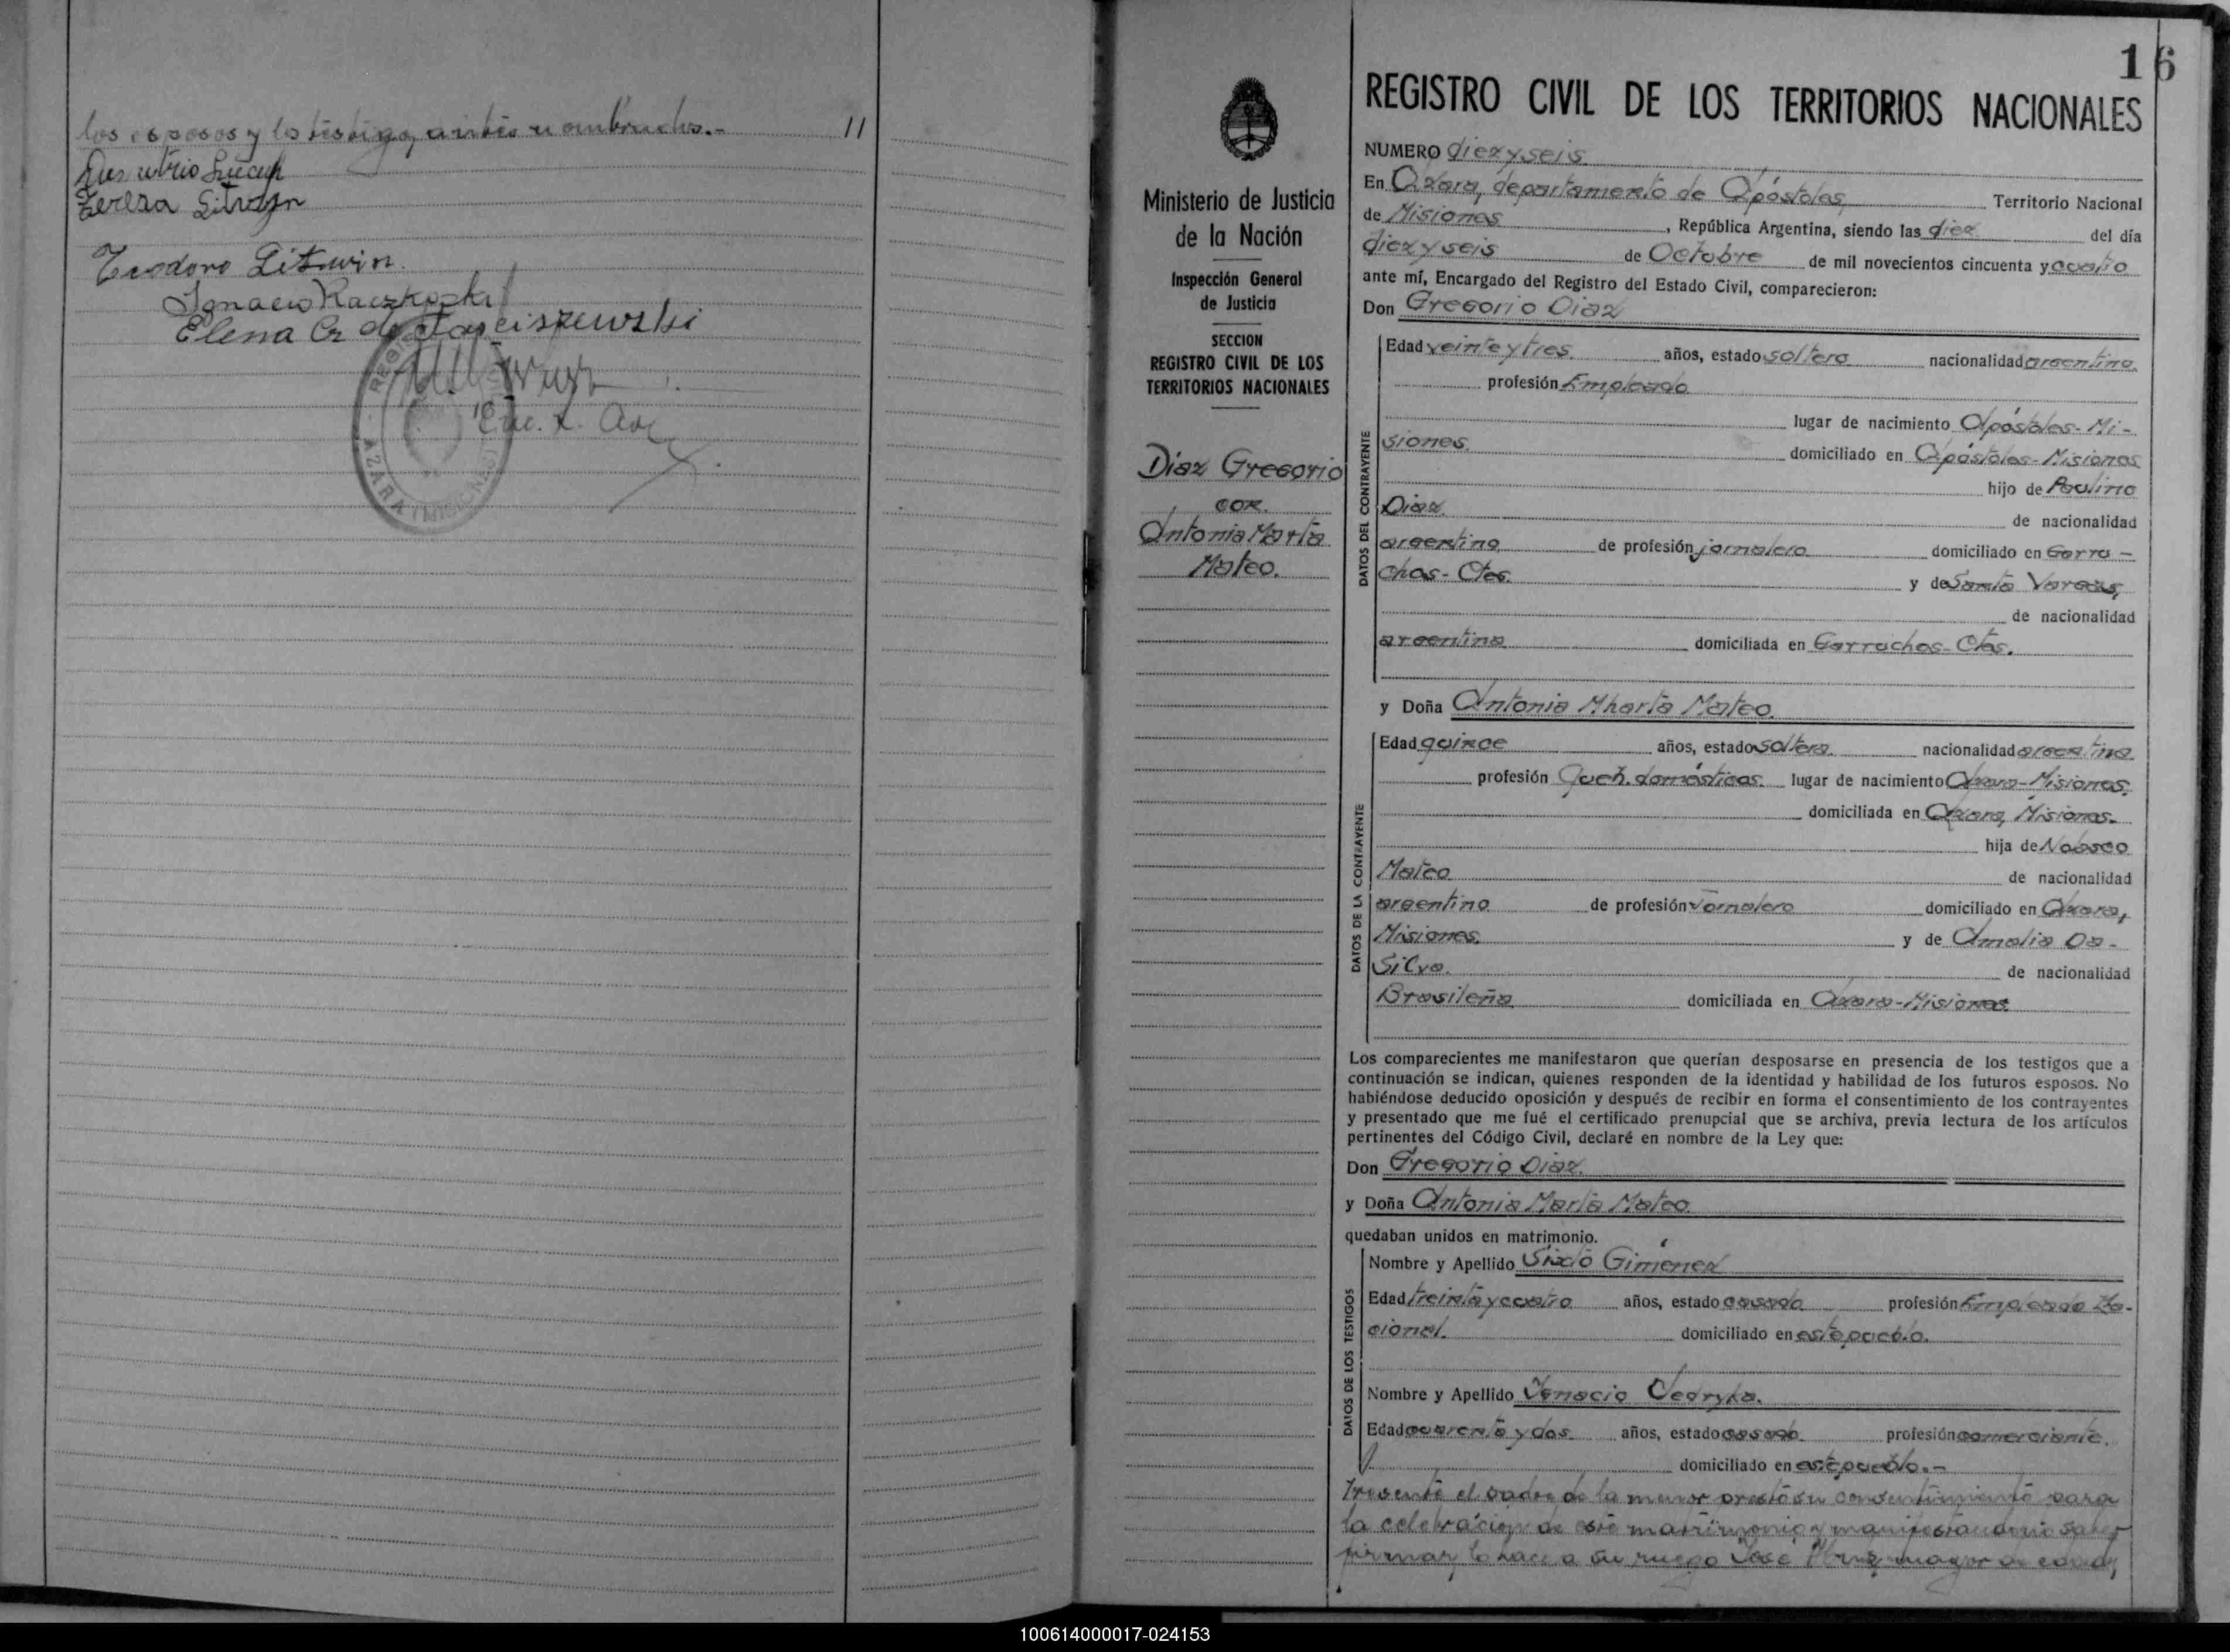 los esposos y los testigos antes nombrados.- 11
Teresa Litwin
Teodoro Litwin
Ignacio Raczkoski
Elena Cz de Jarciszewski
AZARA (MISIONES)
16
REGISTRO CIVIL DE LOS TERRITORIOS NACIONALES
Ministerio de Justicia
de la Nación
Inspección General
de Justicia
SECCION
REGISTRO CIVIL DE LOS
TERRITORIOS NACIONALES
Diaz Gregorio
con
Antonia Marta
Mateo.
NUMERO diezyseis
En Azara, departamento de Apóstoles, Territorio Nacional
de Misiones, República Argentina, siendo las diez del día
diezyseis de Octubre de mil novecientos cincuenta y cuatro
ante mí, Encargado del Registro del Estado Civil, comparecieron:
Don Gregorio Diaz
DATOS DEL CONTRAYENTE
Edad veinteytres años, estado soltero nacionalidad argentino
profesión Empleado
lugar de nacimiento Apóstoles-Mi-
siones. domiciliado en Apóstoles-Misiones
hijo de Paulino
Diaz. de nacionalidad
argentino de profesión jornalero domiciliado en Garru-
chos-Ctes. y de Santa Vargas,
de nacionalidad
argentina domiciliada en Garruchos-Ctes.
y Doña Antonia Mharta Mateo.
DATOS DE LA CONTRAYENTE
Edad quince años, estado soltera nacionalidad argentina
profesión Queh. domésticos. lugar de nacimiento Azara-Misiones.
domiciliada en Azara, Misiones.
hija de
Mateo de nacionalidad
argentino de profesión Jornalero domiciliado en Azara,
Misiones. y de Amalia Da-
Silva. de nacionalidad
Brasileña domiciliada en Azara-Misiones
Los comparecientes me manifestaron que querían desposarse en presencia de los testigos que a
continuación se indican, quienes responden de la identidad y habilidad de los futuros esposos. No
habiéndose deducido oposición y después de recibir en forma el consentimiento de los contrayentes
y presentado que me fué el certificado prenupcial que se archiva, previa lectura de los artículos
pertinentes del Código Civil, declaré en nombre de la Ley que:
Don Gregorio Diaz.
y Doña Antonia Marta Mateo
quedaban unidos en matrimonio.
DATOS DE LOS TESTIGOS
Nombre y Apellido Sixto Gimenez
Edad treintaycuatro años, estado casado profesión Empleado Na-
cional. domiciliado en este pueblo.
Nombre y Apellido Ignacio Jedryka.
Edad cuarenta y dos años, estado casado profesión comerciante.
domiciliado en este pueblo.-
Presente el padre de la menor prestó su consentimiento para
la celebración de este matrimonio y manifestando no saber
firmar, lo hace a su ruego José mayor de edad,
100614000017-024153